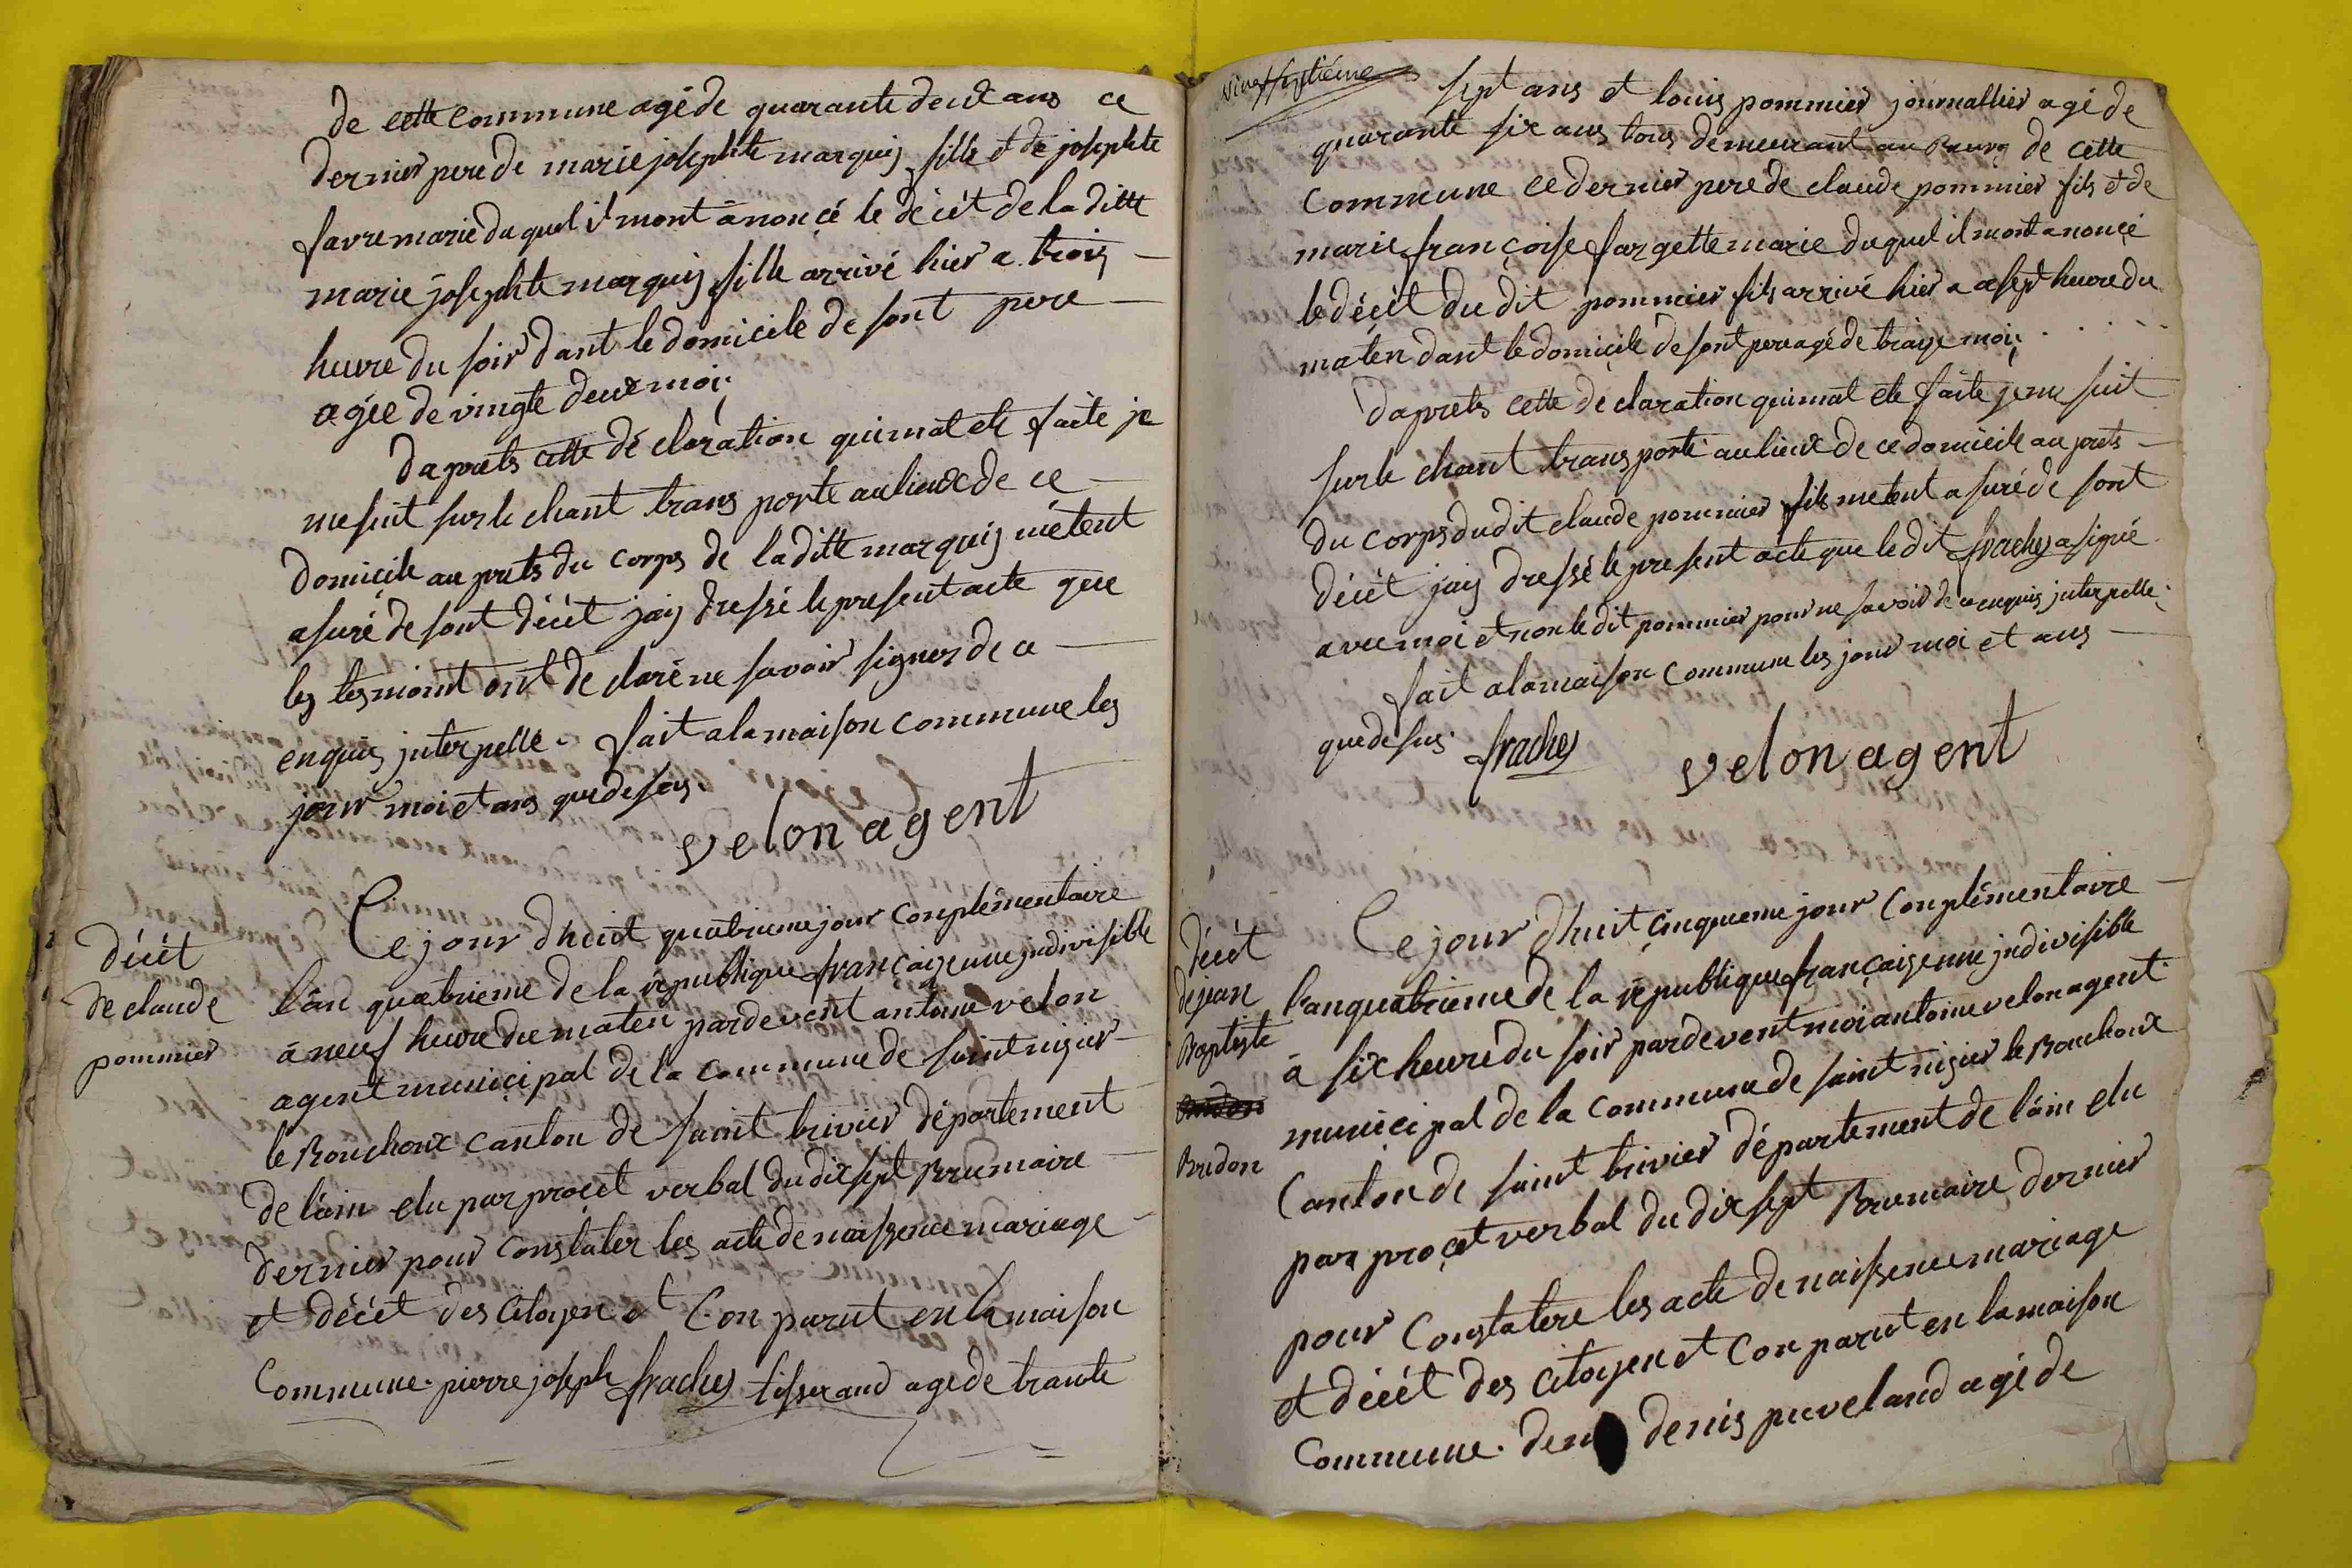 de cette commune agé de quarante deux ans ce
dernier pere de marie josephte marquis fille et de josephte
favre marie du quel il mont ânoncé le décét de la ditte
marie josephte marquis fille arrivé hier a trois
heure du soir dant le domicile de sont pere
agée de vingte deux moi
daprets cette déclaration qui mat ete faite je
me suit sur le chant trans porte au lieux de ce
domicile au prets du corps de la ditte marquis métent
asuré de sont décét jais dressé le present acte que
les tesmoint ont de claré ne savoir signer de ce
enquis interpellé. fait a la maison commune les
jour moi et ans que desus.
velon agent
décét
de claude
pommier
Ce jour dhuit quatrieme jour conplémentaire
lân quatrieme de la république françaize une jndivisible
â neuf heure du maten pardevent antoine velon
agent municipal de la commune de saint nizier
le Bouchoux canton de saint trivier département
de lâin elu par procét verbal du dix sept Brumaire
dernier pour constater les acte de naissence mariage
et décét des citoyen et Con parut en la maison
Commune. pierre joseph fraches tisserand agé de trante
vingt septiéme
sept ans et louis pommier journallier agé de
quarante six ans tous demeurant au Bourg de cette
commune ce dernier pere de claude pommier fils et de
marie françoise fargette marie du quel il mont anoncé
le décét du dit pommier fils arrivé hier a sept heure du
maten dant le domicile de sont pere agé de traize moi
daprets cette déclaration qui mat ete faite je me suit
sur le chant trans porté au lieux de ce domicile au prets
du corps du dit claude pommier fils metent asuré de sont
décét jais dressé le present acte que le dit fraches a signé
avec moi et non le dit pommier pour ne savoir de ce enquis interpellé.
fait a la maison commune les jour moi et ans
que desus. fraches
velon agent
décét
de jean
Baptiste
Bridon
Ce jour dhuit cinquieme jour conplémentaire
lan quatrieme de la république françaize une jndivisible
â six heure du soir pardevent moi antoine velon agent
municipal de la commune de saint nizier le Bouchoux
Canton de saint trivier département de lâin elu
par procét verbal du dix sept Brumaire dernier
pour Constatere les acte de naissence mariage
et décét des citoyen et Con parut en la maison
Commune. denis puveland agé de